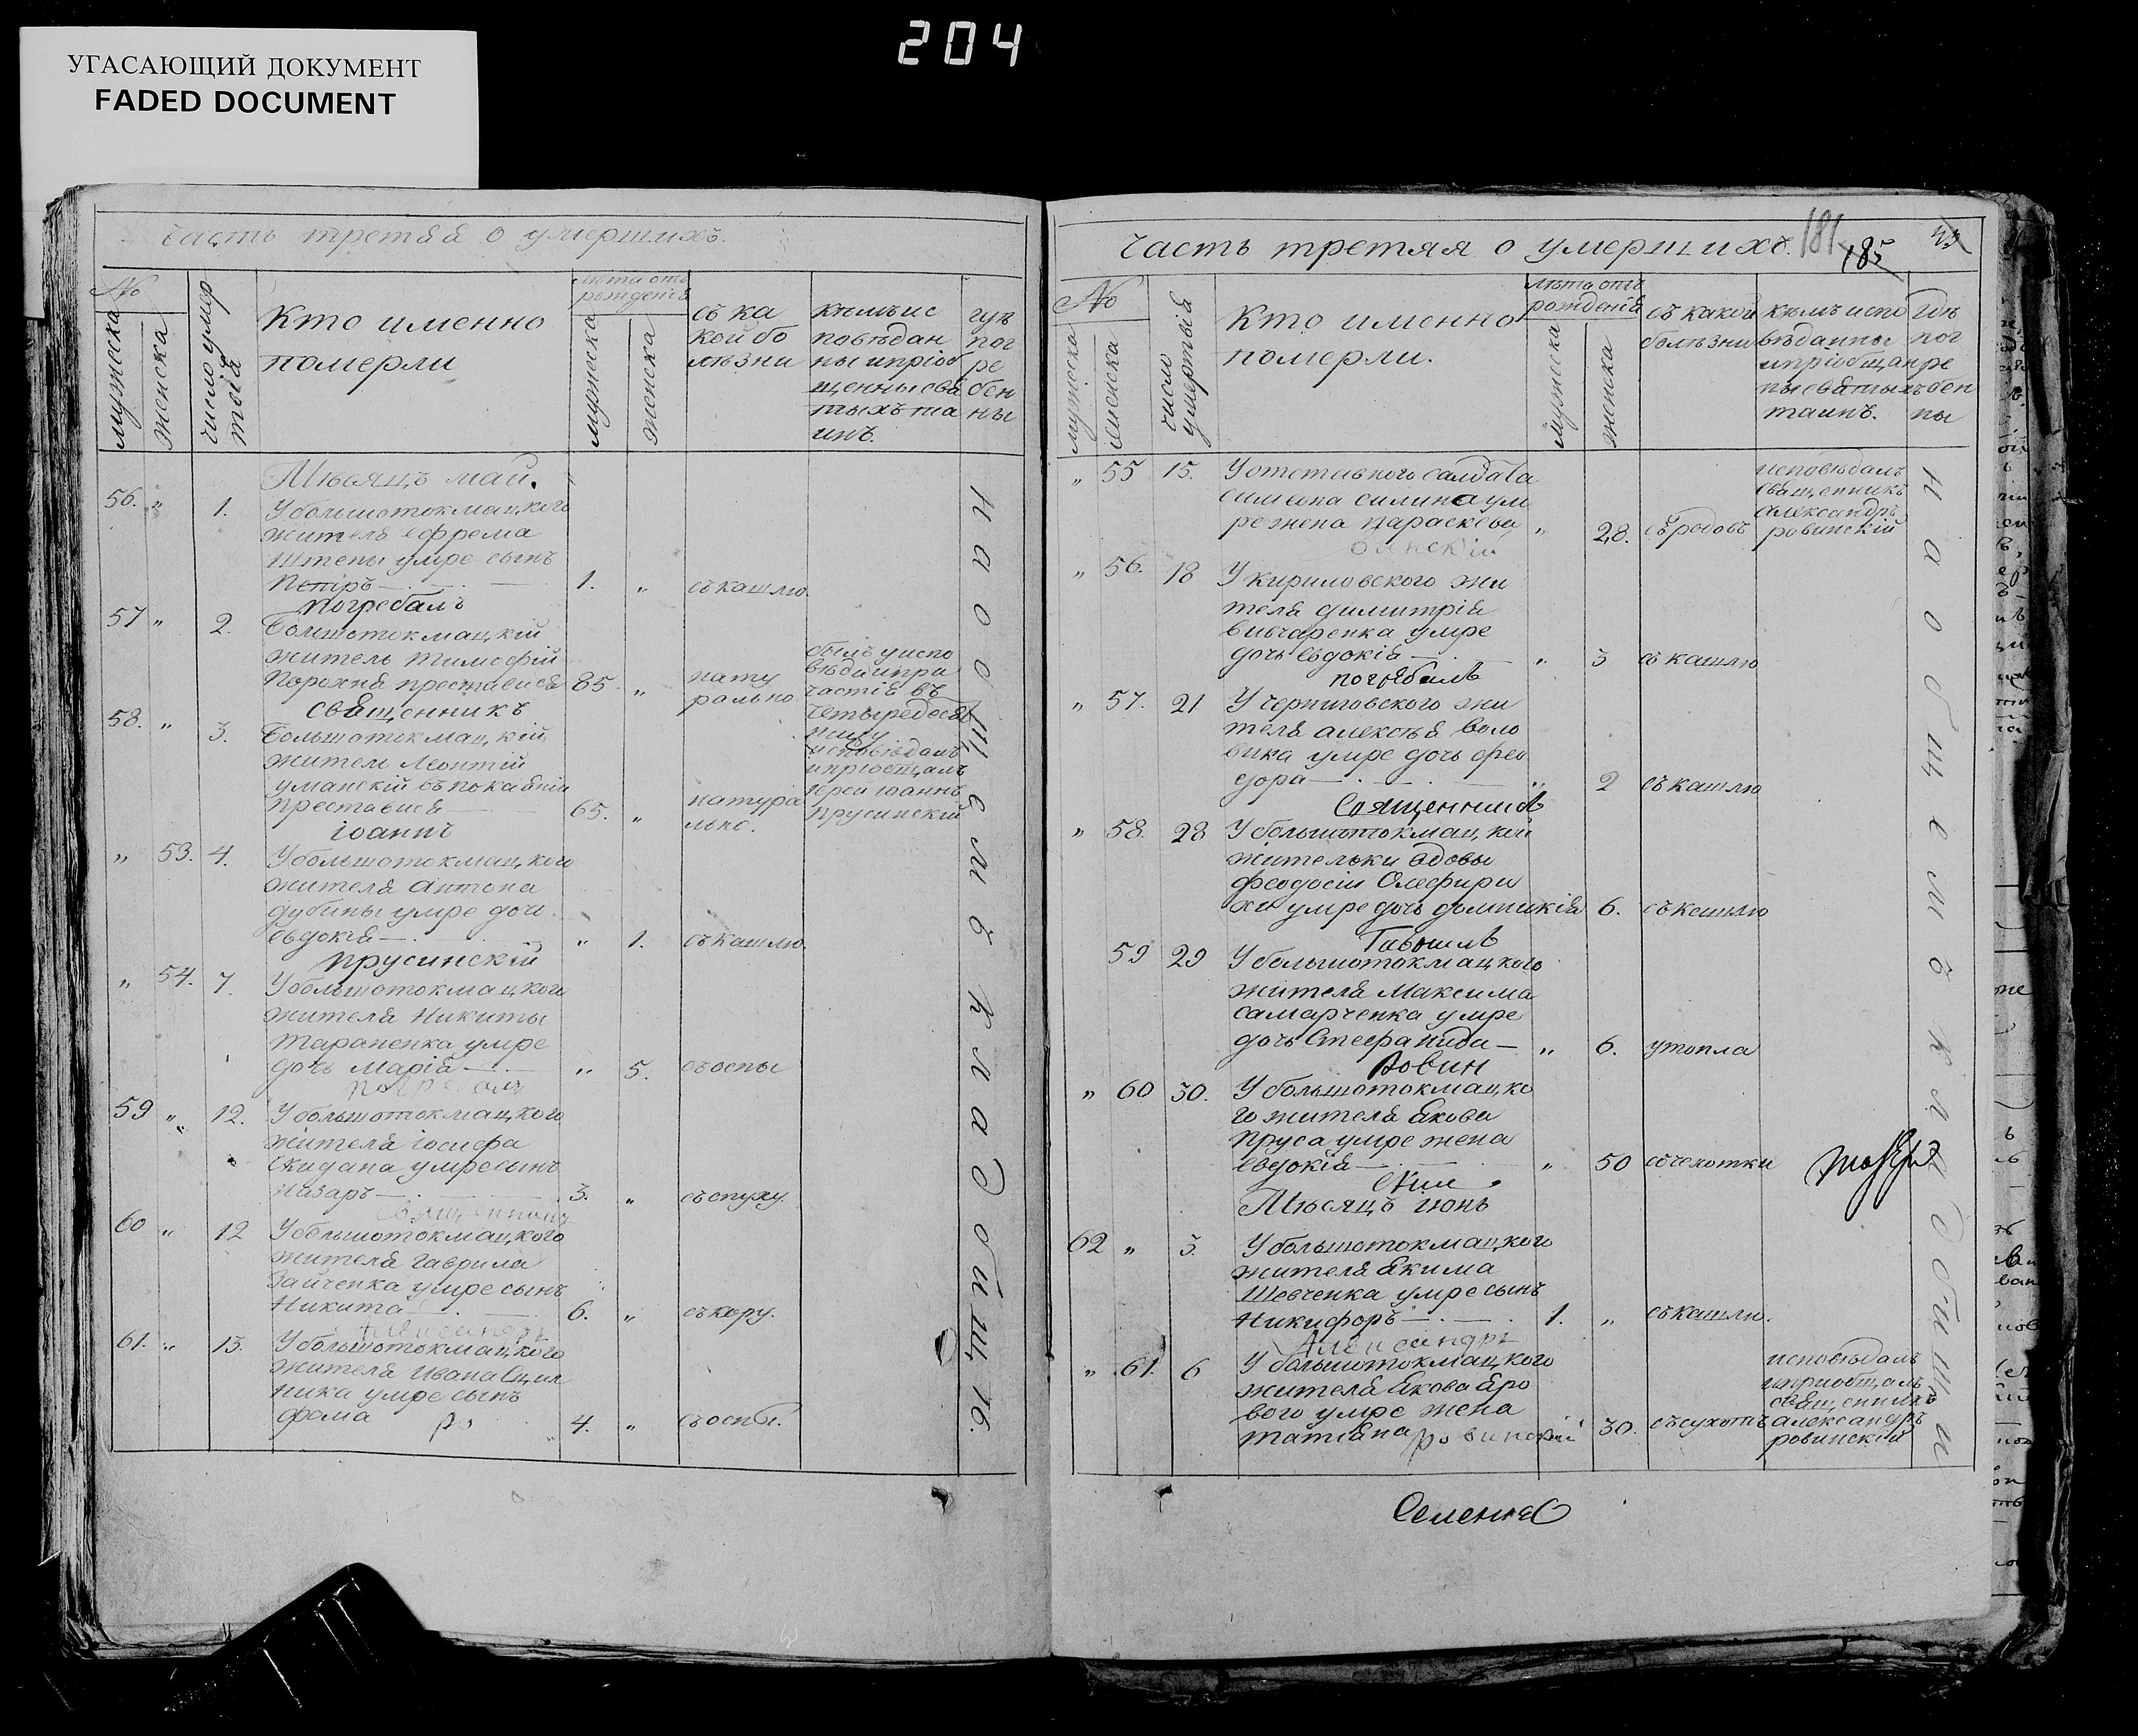 204
УГАСАЮЩИЙ ДОКУМЕНТ
FADED DOCUMENT
Часть третяя о умершихъ.
№
мужеска
женска
число умертыя
Кто именно
померли
лѣта отъ
рожденія
мужеска
женска
съ ка
кой бо
лѣзни
кѣмъ ис
повѣдан
ны и пріоб
щенны свя
тыхъ та
инъ.
гдѣ
пог
ре
бен
ны
Мѣсяцъ май.
56. „ 1. У большотокмацкого
жителя Ефрема
Штепы умре сынъ
Петръ — 1. „ съ кашлю.
погребалъ
57 „ 2. Большотокмацкій
житель Тимофій
Порохня преставися 85. „ нату
рально.
былъ у испо
вѣди и при
частія въ
четыредеся
тницу
священникъ
58. „ 3. Большотокмацкій
житель Леонтій
Уманскій въ покаяніи
преставися — 65. „ натура
льно.
исповѣдалъ
и пріобщалъ
іерей Іоаннъ
Прусинскій
іоаннъ
„ 53. 4. У большотокмацкого
жителя Антона
Дубины умре дочь
Евдокія — „ 1. съ кашлю.
прусинскій
„ 54. 7. У большотокмацкого
жителя Никиты
Тараненка умре
дочь Марія — „ 5. съ оспы
погребалъ
59 „ 12. У большотокмацкого
жителя Іосифа
Скидана умре сынъ
Назаръ — 3. „ съ опуху.
священникъ
60 „ 12 У большотокмацкого
жителя Гаврила
Зайченка умре сынъ
Никита — 6. „ съ кору.
Александръ
61. „ 13. У большотокмацкого
жителя Ивана
ника умре сынъ
Фома 4. „ съ оспы.
ро
на общемъ кладбищѣ.
Часть третяя о умершихъ.
181
185
№
мужеска
женска
число
умертыя
Кто именно
померли.
лѣта отъ
рожденія
мужеска
женска
съ какой
болѣзни
кѣмъ испо
вѣданны
и пріобщан
ны святыхъ
таинъ.
гдѣ
пог
ре
бен
ны
„ 55 15. У отставного салдата
Симиона Силина ум
ре жена Параскева „ 28. съ родовъ
исповѣдалъ
священникъ
Александръ
Ровинскій
винскій
„ 56. 18 У кириловского жи
теля Димитрія
Вивчаренка умре
дочь Евдокія — „ 3 съ кашлю
погребалъ
„ 57. 21 У черниговского жи
теля Алексѣя Воло
вика умре дочь Фео
дора — „ 2 съ кашлю
Священникъ
„ 58. 28 У большотокмацкой
жительки вдовы
Феодосіи Олефири
хи умре дочь Домникія 6. съ кашлю
Гавриилъ
59 29 У большотокмацкого
жителя Максима
Самарченка умре
дочь Стефанида — „ 6. утопла
Ровин
„ 60 30. У большотокмацко
го жителя Якова
Пруса умре жена
Евдокія — „ 50 съ чехотки
скій
Мѣсяцъ июнь
62 „ 3. У большотокмацкого
жителя Якима
Шевченка умре сынъ
Никифоръ — 1. „ съ кашлю.
Александръ
„ 61. 6 У большотокмацкого
жителя Якова Яро
вого умре жена
Татіана 30. съ сухотъ
исповѣдалъ
и приобщалъ
священникъ
Александръ
Ровинскій
ровинскій
на общемъ кладбищи
Семенна